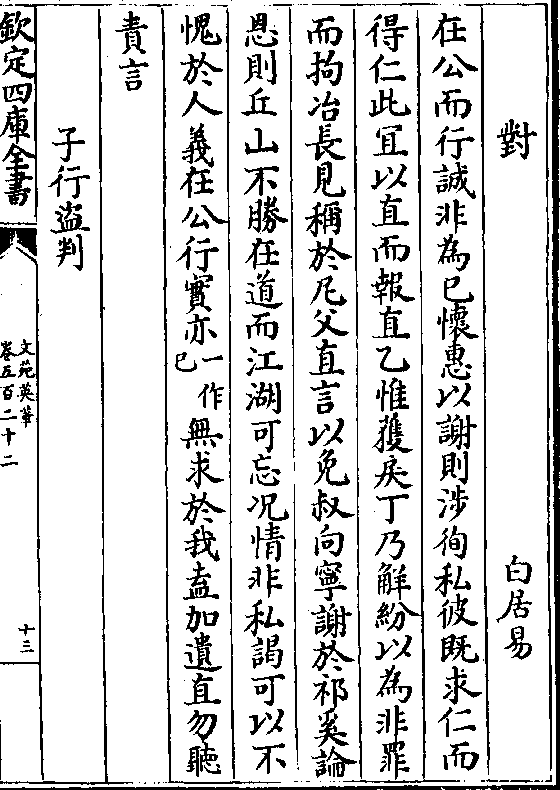 對　白居易
在公而行誠非為已懷惠以謝則涉徇私彼既求仁而
得仁此冝以直而報直乙惟獲戾丁乃解紛以為非罪
而拘冶長見稱於尼父直言以免叔向寧謝於祁奚論
恩則丘山不勝在道而江湖可忘况情非私謁可以不
愧於人義在公行實亦一作已無求於我盍加遺直勿聽
責言
子行盜判
欽定四庫全書
文苑英華
卷五百二十二
十三